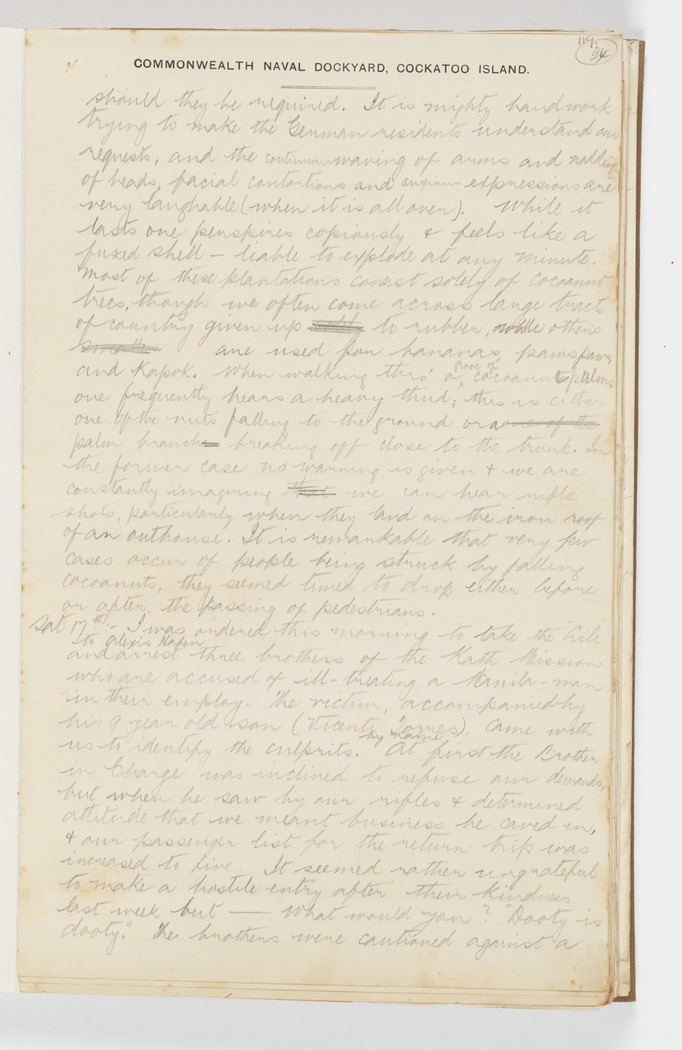 119.
34
COMMONWEALTH NAVAL DOCKYARD, COCKATOO ISLAND.
should they be required. It is mighty hard work
trying to make the German residents understand our
requests, and the continuous waving of arms and nodding
of heads, facial contortions and anxious expressions are
very laughable (when it is all over). While it
lasts one perspires copiously & feels like a
fuzed shell — liable to explode at any minute.
Most of these plantations consist solely of cocoanut
trees, though we often come across large tracts
of country given up to rubber, while others
are used for bananas, pawpaws
and Kapok. When walking thro' a grove of cocoanut palms
one frequently hears a heavy thud; this is either
one of the nuts falling to the ground or a one of the
palm branch breaking off close to the trunk. In
the former case no warning is given & we are
constantly imagining that we can hear rifle
shots, particularly when they land on the iron roof
of an outhouse. It is remarkable that very few
cases occur of people being struck by falling
cocoanuts, they seemed timed to drop either before
or after the passing of pedestrians.
Sat 17th:- I was ordered this morning to take the
to Alexis Hafen
and arrest three brothers of the Kath Mission
who are accused of ill-treating a Manila-man
in their employ. The victim, accompanied by
his 9 year old son (Vicente Torres by name), came with
us to identify the culprits. At first the Brother
in Charge was inclined to refuse our demands,
but when he saw by our rifles & determined
attitude that we meant business he caved in,
& our passenger list for the return trip was
increased to five. It seemed rather ungrateful
to make a hostile entry after their kindness
last week but — what would you? "Dooty is
dooty." The brothers were cautioned against a